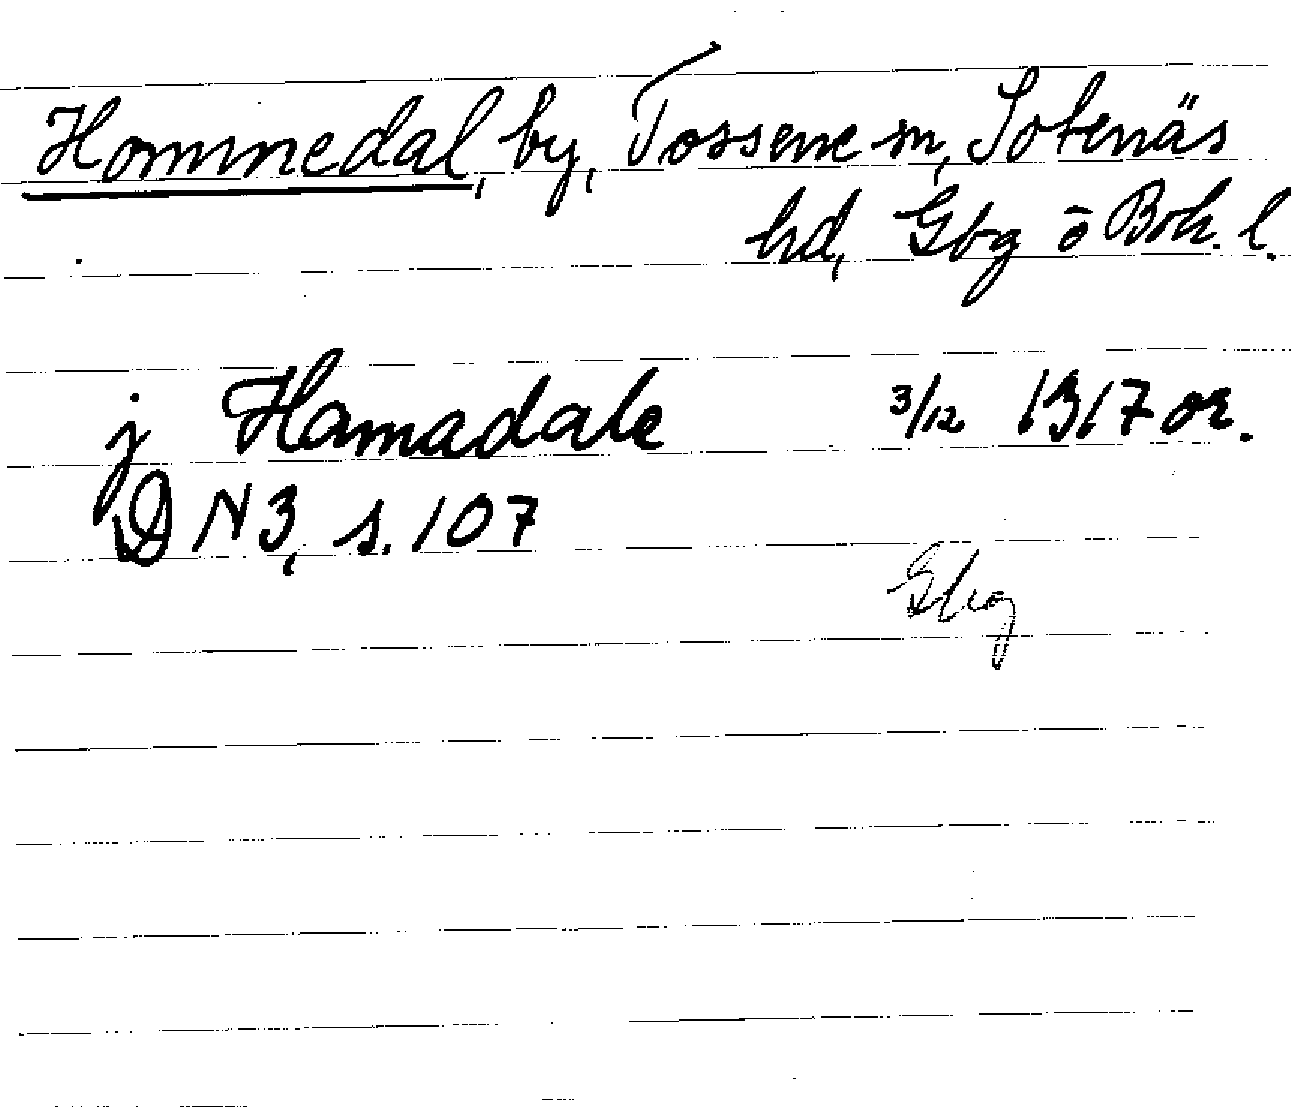 Hommedal, by, Tossene sn, Sotenäs
hd, Gbg o Boh. l.
j Hamadale 3/12 1317 or.
DN 3, s. 107
Gbg